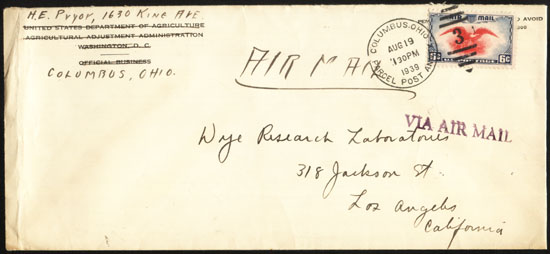 H.E. Pryor, 1630 King Ave
UNITED STATES DEPARTMENT OF AGRICULTURE
AGRICULTURAL ADJUSTMENT ADMINISTRATION
WASHINGTON, D. C.
OFFICIAL BUSINESS
COLUMBUS, OHIO.
AIR MAIL
COLUMBUS, OHIO
AUG 19
1 30 PM
1939
PARCEL POST
MAIL
3
6¢
AVOID
300
VIA AIR MAIL
Dye Research Laboratories
318 Jackson St.
Los Angeles
California